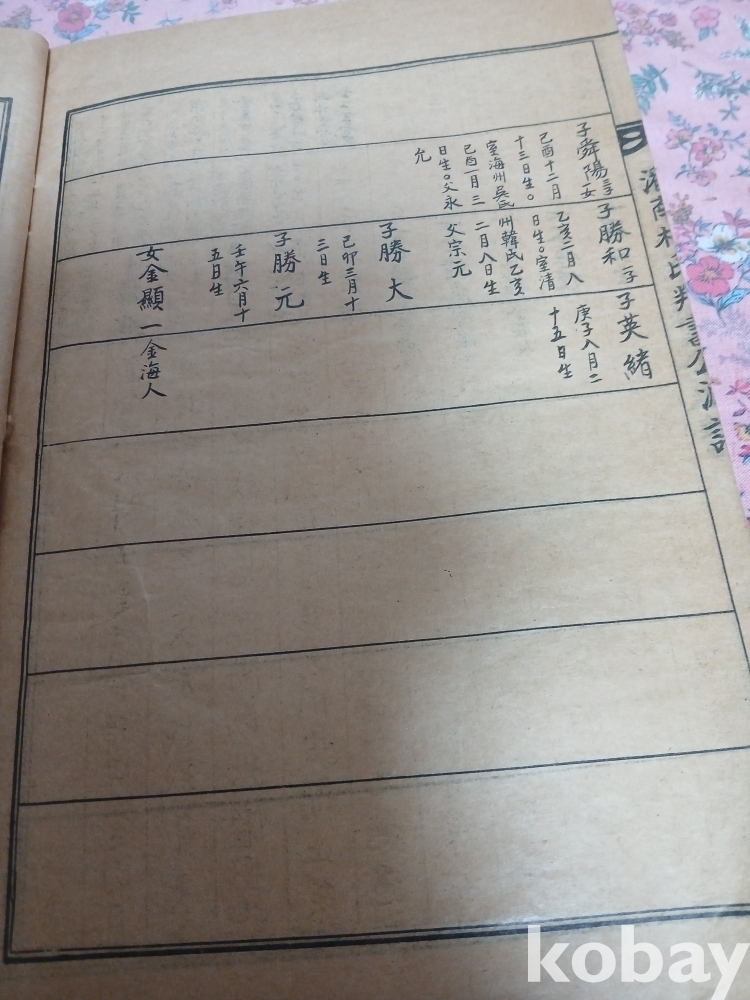 子舜陽
三子一女
己酉十二月
十三日生。
室海州吳氏
己酉一月三
日生。父永
允
子勝和
一子
乙亥二月八
日生。室清
州韓氏乙亥
二月八日生
父宗元
子勝大
己卯三月十
三日生
子勝元
壬午六月十
五日生
女金顯一
金海人
子英緒
庚子八月二
十五日生
kobay